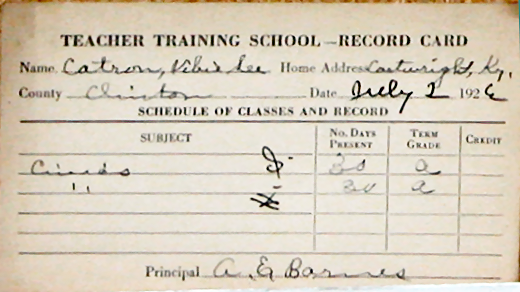 TEACHER TRAINING SCHOOL—RECORD CARD
Name Catron, Vibie Lee Home Address Cartwright, Ky.
County Clinton Date July 2 1926
SCHEDULE OF CLASSES AND RECORD
SUBJECT No. DAYS PRESENT TERM GRADE CREDIT
30 a
" 30 a
Principal A. E. Barnes